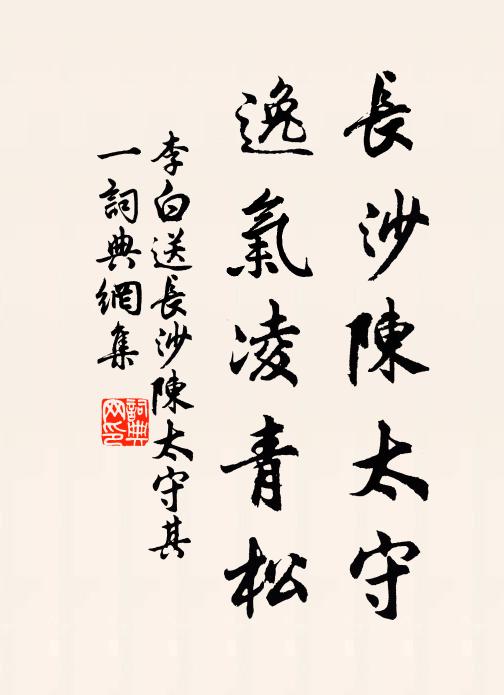 長沙陳太守
逸氣凌青松
李白送長沙陳太守其
一詞典網集
詞典
网印